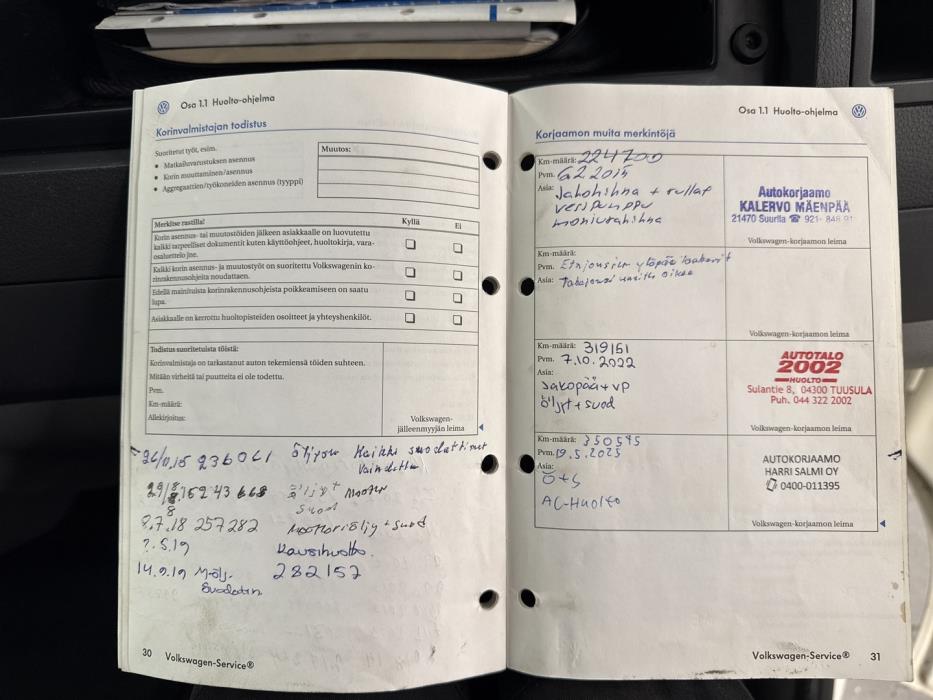 Osa 1.1 Huolto-ohjelma
Korinvalmistajan todistus
Suoritetut työt, esim.
• Matkailuvarustuksen asennus
• Korin muuttaminen/asennus
• Aggregaattien/työkoneiden asennus (tyyppi)
Muutos:
Merkitse rastilla!
Kyllä
Ei
Korin asennus- tai muutostöiden jälkeen asiakkaalle on luovutettu
kaikki tarpeelliset dokumentit kuten käyttöohjeet, huoltokirja, vara-
osaluettelo jne.
Kaikki korin asennus- ja muutostyöt on suoritettu Volkswagenin ko-
rinrakennusohjeita noudattaen.
Edellä mainituista korinrakennusohjeista poikkeamiseen on saatu
lupa.
Asiakkaalle on kerrottu huoltopisteiden osoitteet ja yhteyshenkilöt.
Todistus suoritetuista töistä:
Korinvalmistaja on tarkastanut auton tekemiensä töiden suhteen.
Mitään virheitä tai puutteita ei ole todettu.
Pvm.
Km-määrä:
Allekirjoitus:
Volkswagen-
jälleenmyyjän leima
236061 Kaikki suodattimet
Vaihdettu
243 668 Moottori
Suod
8.7.18 257282 Moottoriöljy + suod
?.5.19 Kausihuolto.
14.9.19 M-ölj- 282157
Suodatin
30 Volkswagen-Service®
Osa 1.1 Huolto-ohjelma
Korjaamon muita merkintöjä
Km-määrä: 224700
Pvm. 6.2 2015
Asia: Jakohihna + rullat
vesipumppu
moniurahihna
Autokorjaamo
KALERVO MÄENPÄÄ
21470 Suurila ☎ 921-
Volkswagen-korjaamon leima
Km-määrä:
Pvm. Etujousien yläpää
Asia: Takajousi oikea
Volkswagen-korjaamon leima
Km-määrä: 319151
Pvm. 7.10.2022
Asia:
Jakopää + vp
öljyt + suod
AUTOTALO
2002
HUOLTO
Sulantie 8, 04300 TUUSULA
Puh. 044 322 2002
Volkswagen-korjaamon leima
Km-määrä: 350595
Pvm. 19.5.2025
Asia:
Ö+S
AC-Huolto
AUTOKORJAAMO
HARRI SALMI OY
0400-011395
Volkswagen-korjaamon leima
Volkswagen-Service® 31